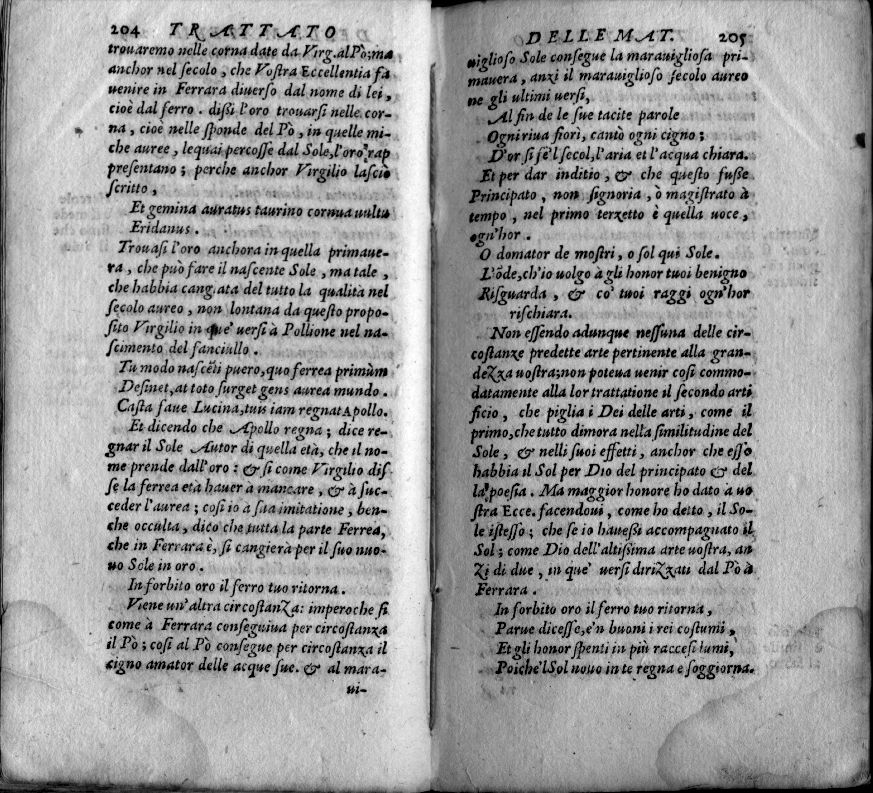 204 TRATTATO
trouaremo nelle corna date da Virg. al Pò; ma
anchor nel secolo, che Vostra Eccellentia fa
uenire in Ferrara diuerso dal nome di lei,
cioè dal ferro. dißi l'oro trouarsi nelle cor-
na, cioè nelle sponde del Pò, in quelle mi-
che auree, lequai percosse dal Sole, l'oro rap
presentano; perche anchor Virgilio lasciò
scritto,
Et gemina auratus taurino cornua uultu
Eridanus.
Trouasi l'oro anchora in quella primaue-
ra, che può fare il nascente Sole, ma tale,
che habbia cangiata del tutto la qualità nel
secolo aureo, non lontana da questo propo-
sito Virgilio in que' uersi à Pollione nel na-
scimento del fanciullo.
Tu modo nascēti puero, quo ferrea primùm
Desinet, at toto surget gens aurea mundo.
Casta faue Lucina, tuus iam regnat Apollo.
Et dicendo che Apollo regna; dice re-
gnar il Sole Autor di quella età, che il no-
me prende dall'oro: & si come Virgilio dis
se la ferrea età hauer à mancare, & à suc-
ceder l'aurea; cosi io à sua imitatione, ben-
che occulta, dico che tutta la parte Ferrea,
che in Ferrara è, si cangierà per il suo nuo-
uo Sole in oro.
In forbito oro il ferro tuo ritorna.
Viene un' altra circostanza: imperoche si
come à Ferrara conseguiua per circostanza
il Pò; cosi al Pò consegue per circostanza il
cigno amator delle acque sue. & al mara-
ui-
DELLE MAT. 205
uiglioso Sole consegue la marauigliosa pri-
mauera, anzi il marauiglioso secolo aureo
ne gli ultimi uersi,
Al fin de le sue tacite parole
Ogni riua fiorì, cantò ogni cigno;
D'or si fè'l secol, l'aria et l'acqua chiara.
Et per dar inditio, & che questo fuße
Principato, non signoria, ò magistrato à
tempo, nel primo terzetto è quella uoce,
ogn'hor.
O domator de mostri, o sol qui Sole.
L'ode, ch'io uolgo à gli honor tuoi benigno
Risguarda, & co' tuoi raggi ogn'hor
rischiara.
Non essendo adunque nessuna delle cir-
costanze predette arte pertinente alla gran-
dezza uostra; non poteua uenir cosi commo-
datamente alla lor trattatione il secondo arti
ficio, che piglia i Dei delle arti, come il
primo, che tutto dimora nella similitudine del
Sole, & nelli suoi effetti, anchor che esso
habbia il Sol per Dio del principato & del
la poesia. Ma maggior honore ho dato à uo
stra Ecce. facendoui, come ho detto, il So-
le istesso; che se io haueßi accompagnato il
Sol; come Dio dell'altißima arte uostra, an
zi di due, in que' uersi dirizzati dal Pò à
Ferrara.
In forbito oro il ferro tuo ritorna,
Parue dicesse, e'n buoni i rei costumi,
Et gli honor spenti in più raccesi lumi,
Poiche'l Sol nouo in te regna e soggiorna.